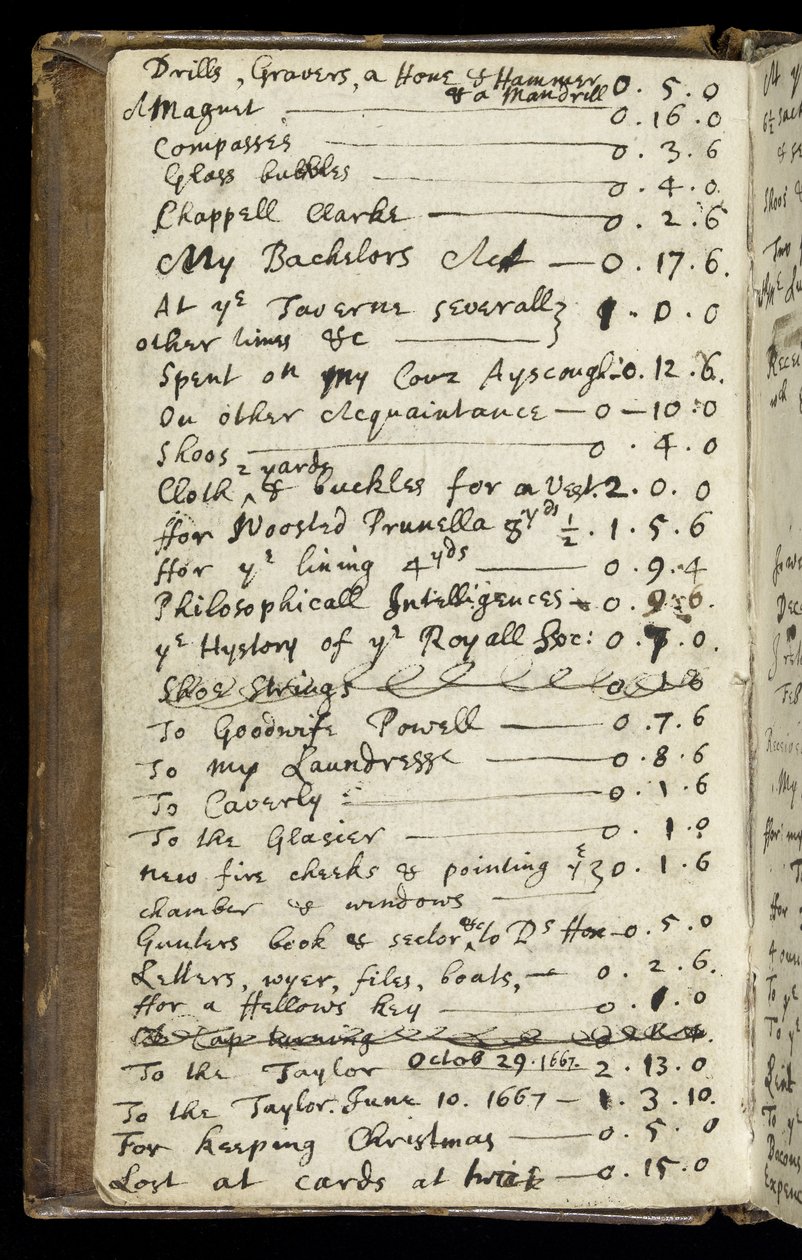 Drills, Gravers, a Hone & Hammer 0. 5. 0
& a Mandrill
A Magnet 0. 16. 0
Compasses 0. 3. 6
Glass bubbles 0. 4. 0
Chappell Clarke 0. 2. 6
My Bachelors Act 0. 17. 6.
At yᵉ Taverne severall } 1. 0. 0
other times &c
Spent on my Couz Ayscough: 0. 12. 6.
On other Acquaintance 0 10. 0
Shoos 0. 4. 0
2 yards
Cloth & buckles for a Vest. 2. 0. 0
ffor Woosted Prunella 8 yᵈˢ ½. 1. 5. 6
ffor yᵉ lining 4 yᵈˢ 0. 9. 4
Philosophicall Intelligences 0. 9. 6.
yᵉ Hystory of yᵉ Royall Soc: 0. 7. 0.
Shoe Strings 0 1 8
To Goodwife Powell 0. 7. 6
To my Laundresse 0. 8. 6
To Caverly 0. 1. 6
To the Glasier 0. 1. 0
new fire cheeks & pointing yᵉ } 0. 1. 6
chamber & windows
Gunters book & sector &c to Dˢ Fox 0. 5. 0
Letters, wyer, files, boats, 0. 2. 6.
ffor a ffellows key 0. 1. 0
Tap turning
To the Taylor Octob 29. 1667. 2. 13. 0
To the Taylor. June 10. 1667 1. 3. 10.
For keeping Christmas 0. 5. 0
Lost at cards at twice 0. 15. 0